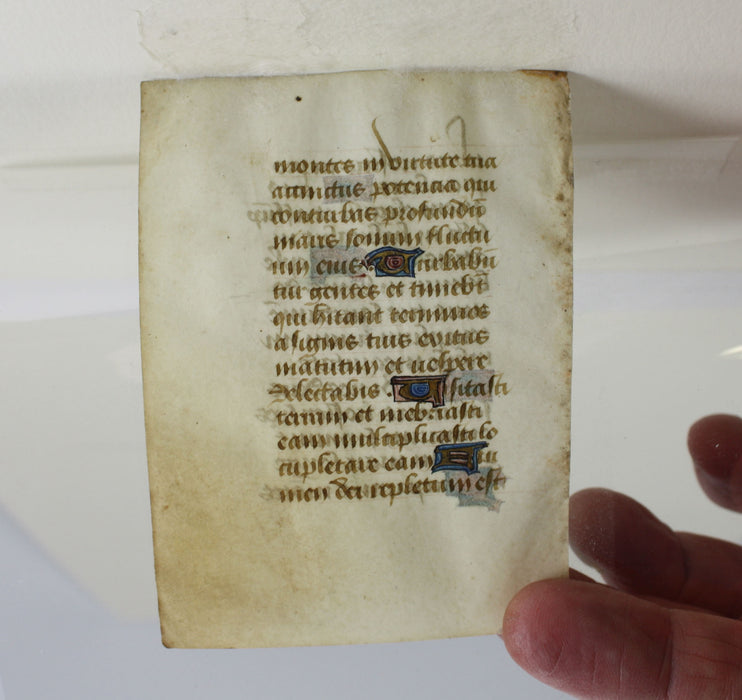 montes in virtute tua
accinctus potencia qui
conturbas profundū
maris sonum fluctu
um eius Turbabū
tur gentes et timebūt
qui hītant terminos
a signis tuis exitus
matutini et vespere
delectabis Visitasti
terram et inebriasti
eam multiplicasti lo
cupletare eam Flu
men dei repletum est